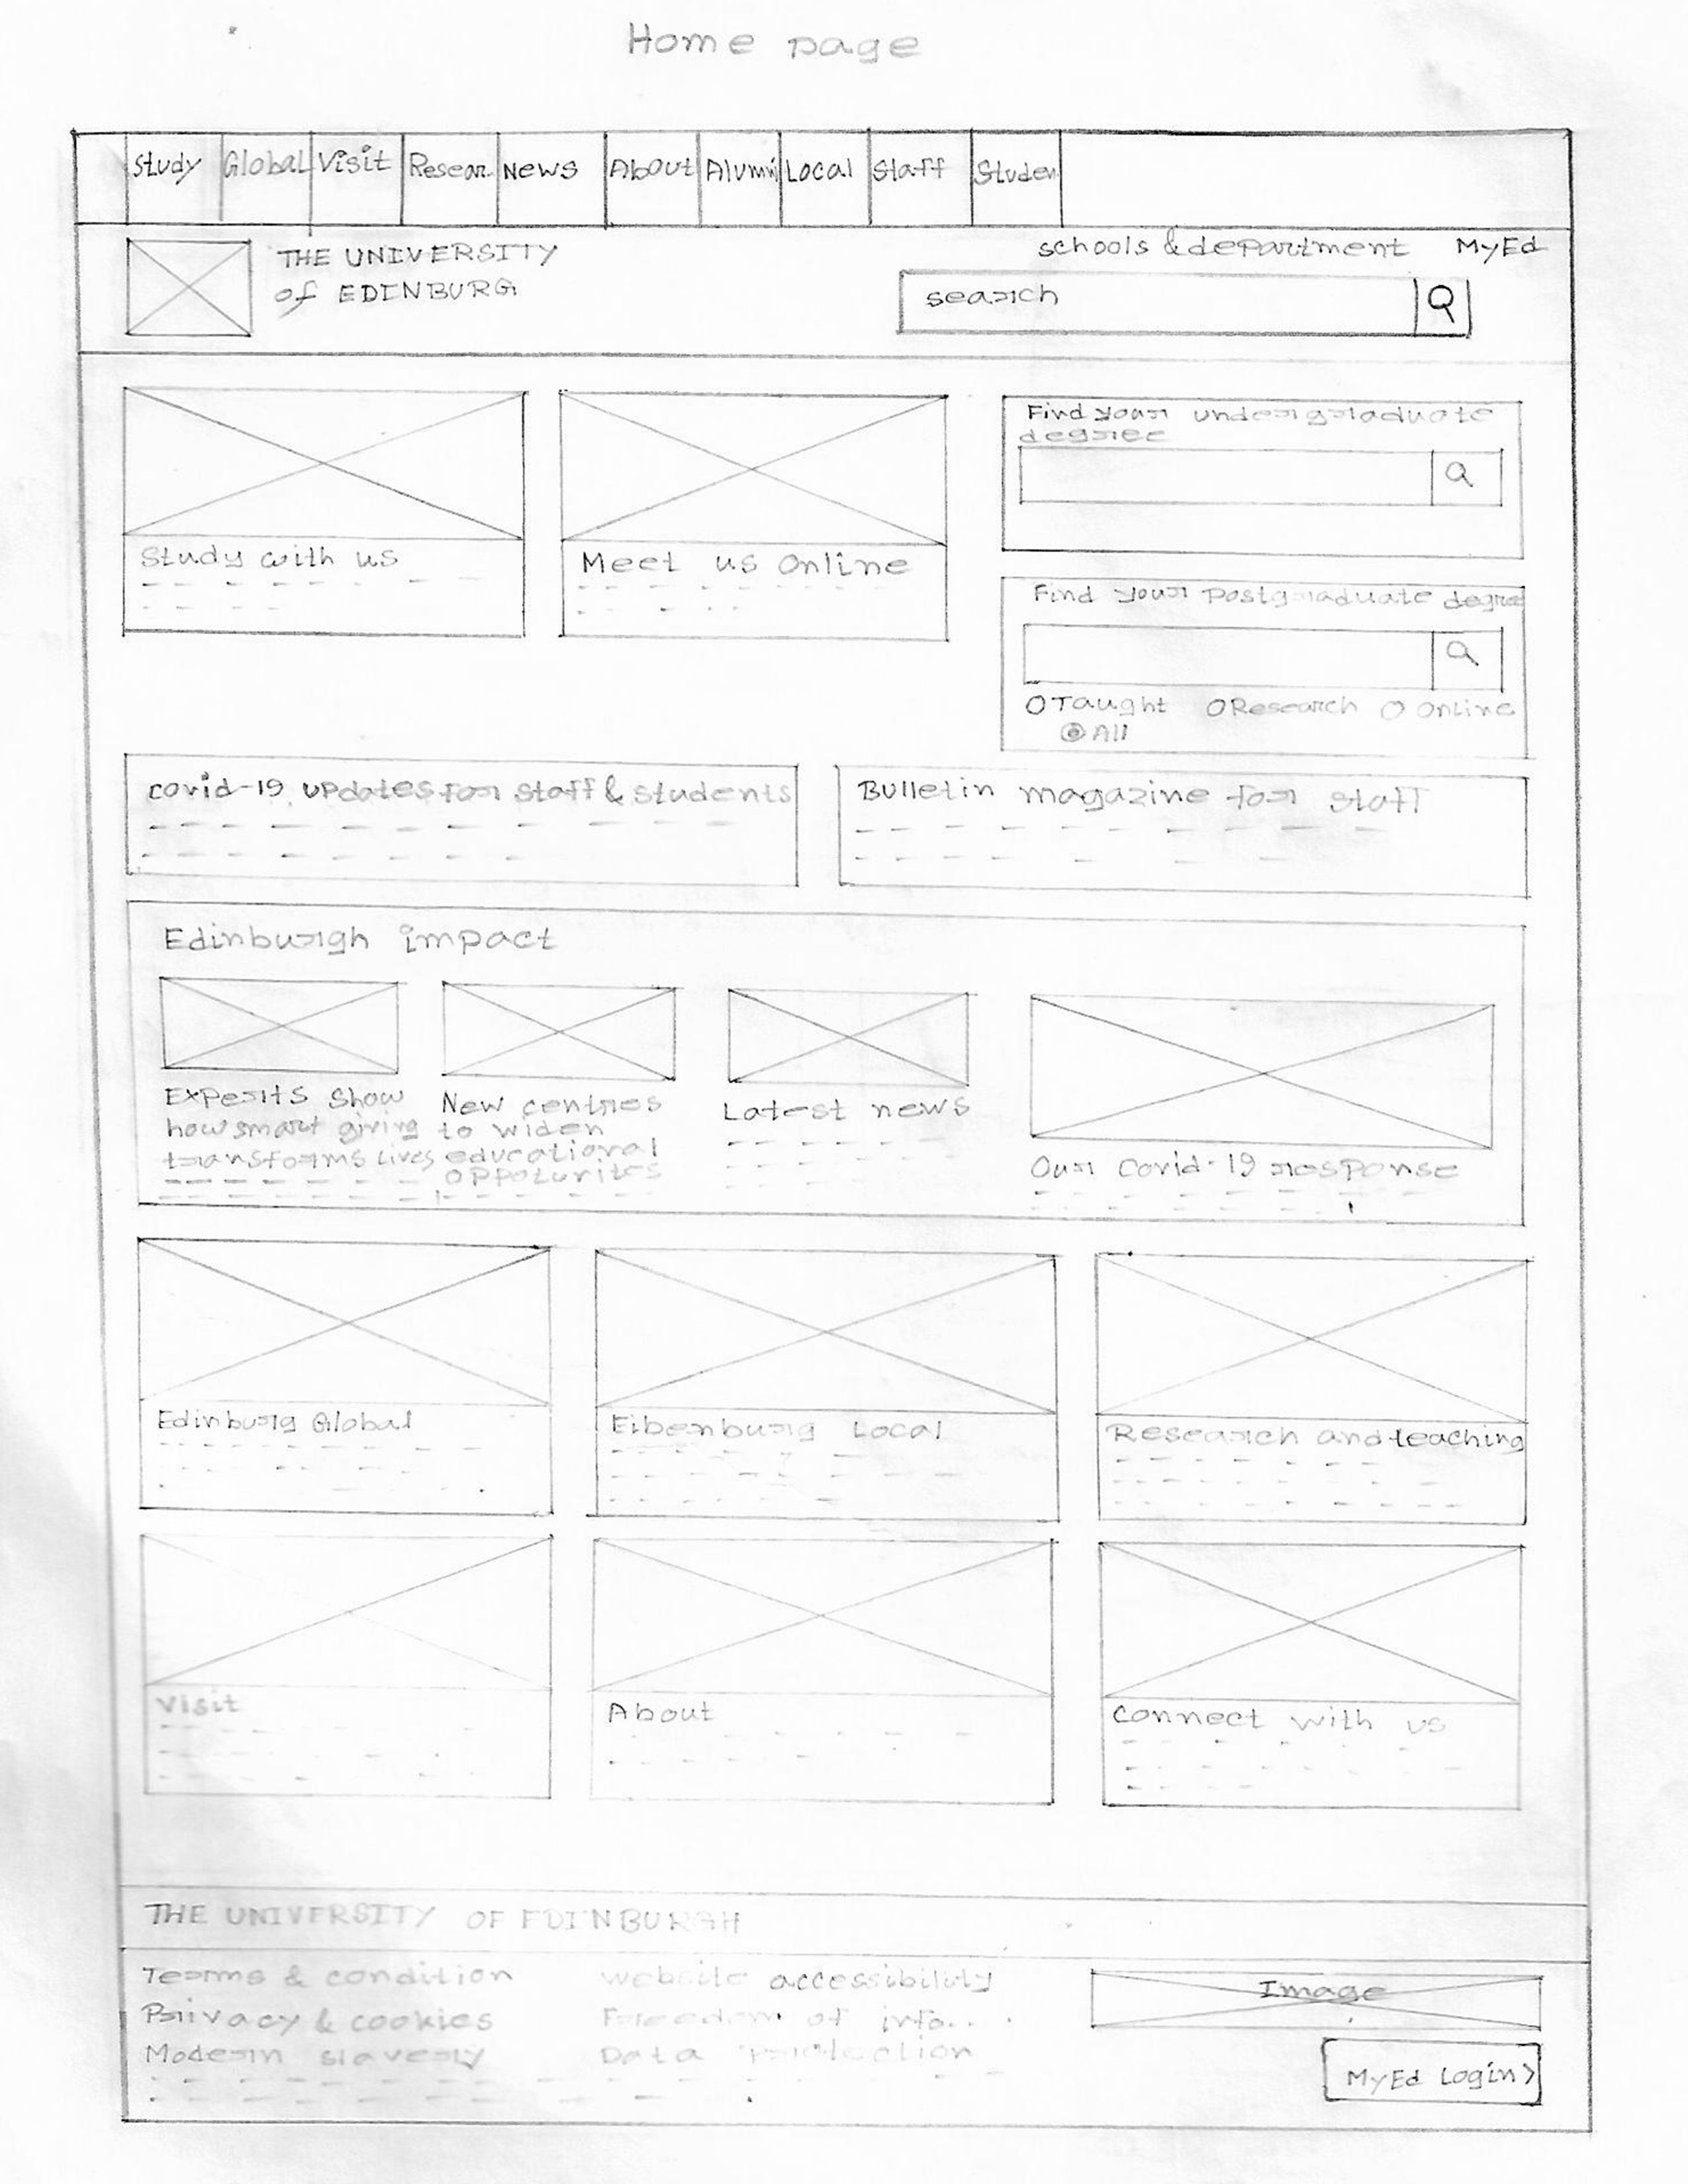 Home page
Study Global Visit Resear News About Alumni Local Staff Studen
THE UNIVERSITY
of EDINBURG
schools & department MyEd
search
Find your undergraduate
degree
Study with us
Meet us Online
Find your Postgraduate degree
Taught Research Online
All
covid-19 updates for staff & students
Bulletin magazine for staff
Edinburgh impact
Experts show
how smart giving
transforms lives
New centres
to widen
educational
oppoturites
Latest news
Our covid-19 response
Edinburg Global
Eibenburg Local
Research and teaching
Visit
About
Connect with us
THE UNIVERSITY OF EDINBURGH
Terms & condition
Privacy & cookies
Modern slavery
website accessibility
Freedom of info...
Data protection
Image
MyEd Login>